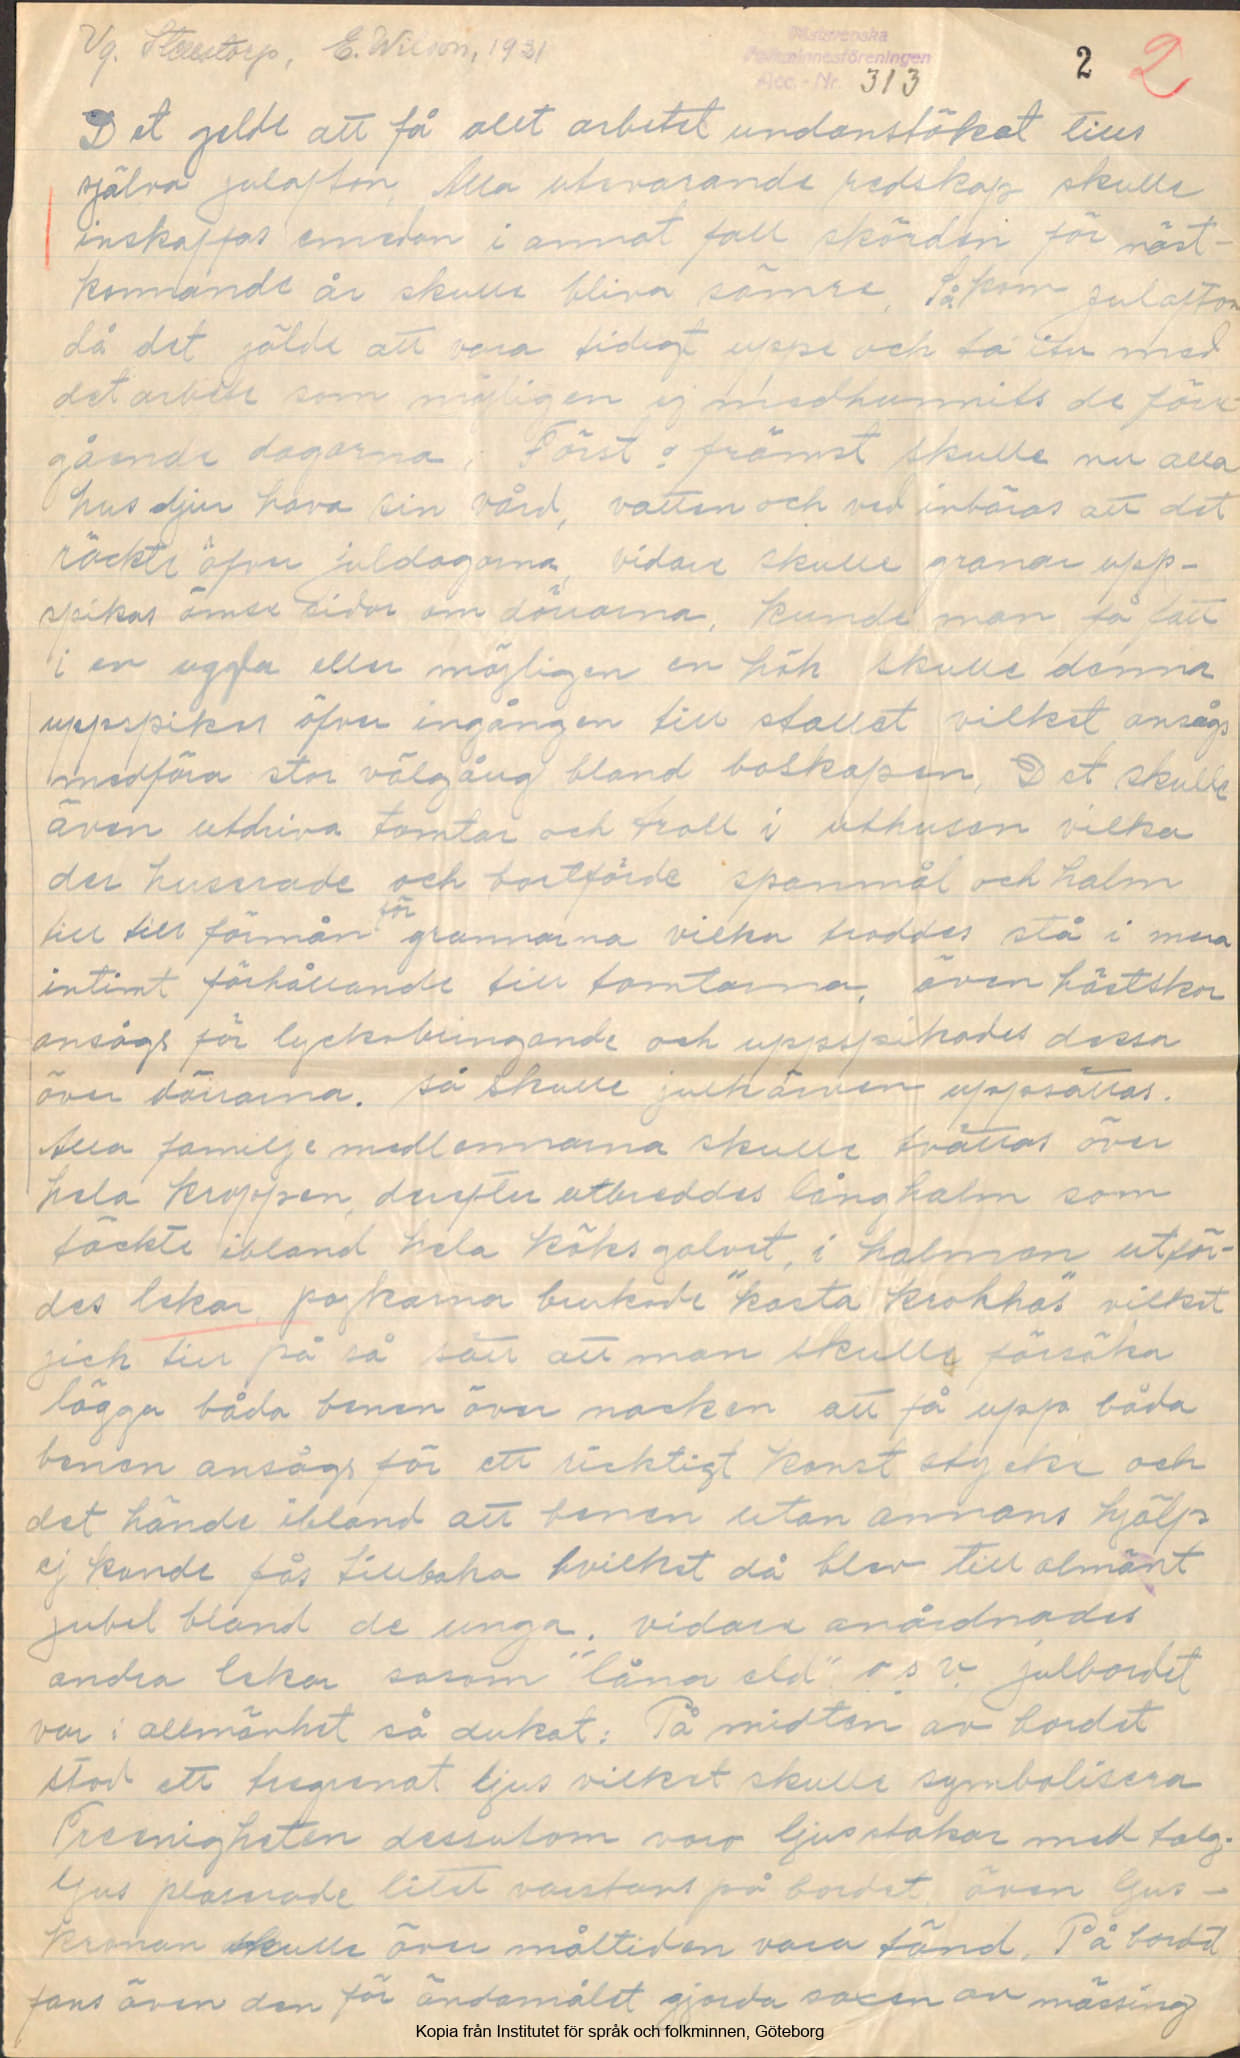 Vg. Starrtorp, E. Wilson, 1931
Västsvenska
Folkminnesföreningen
Acc.-Nr. 313
2 2
Det gelde att få allt arbetet undanstökat tills
själva julafton, Alla utevarande redskap skulle
inskaffas emedan i annat fall skörden för näst-
kommande år skulle bliva sämre, Så kom julafton
då det jälde att vara tidigt uppe och ta itu med
det arbete som möjligen ej medhunnits de före-
gående dagarna, Först o främst skulle nu alla
husdjur hava sin vård, vatten och ved inbäras att det
räckte öfver juldagarna, vidare skulle granar upp-
spikas ömse sidor om dörrarna, kunde man få fatt
i en uggla eller möjligen en hök skulle denna
uppspikas öfver ingången till stallet vilket ansågs
medföra stor välgång bland boskapen, Det skulle
även utdriva tomtar och troll i uthusen vilka
der huserade och bortförde spanmål och halm
till till förmån för grannarna vilka troddes stå i mera
intimt förhållande till tomtarna, även hästskor
ansågs för lyckobringande och uppspikades dessa
över dörrarna. så skulle julkärven uppsättas.
Alla familjemedlemmarna skulle tvättas över
hela kroppen, derefter utbreddes långhalm som
täckte ibland hela köksgolvet, i halmen utför-
des lekar, pojkarna brukade "kasta krokhas" vilket
jick till på så sätt att man skulle försöka
lägga båda benen över nacken att få upp båda
benen ansågs för ett ricktigt konststycke och
det hände ibland att benen utan annans hjälp
ej kunde fås tillbaka hvilket då blev till almänt
jubel bland de unga. vidare anårdnades
andra lekar sosom "låna eld" o.s.v. julbordet
var i allmänhet så dukat: På midten av bordet
stod ett tregrenat ljus vilket skulle symbolisera
Treenigheten dessutom voro ljusstakar med talg-
ljus plaserade litet varstans på bordet, även ljus-
kronan skulle över måltiden vara tänd. På bordet
fans även den för ändamålet gjorda saxen av mässing
Kopia från Institutet för språk och folkminnen, Göteborg